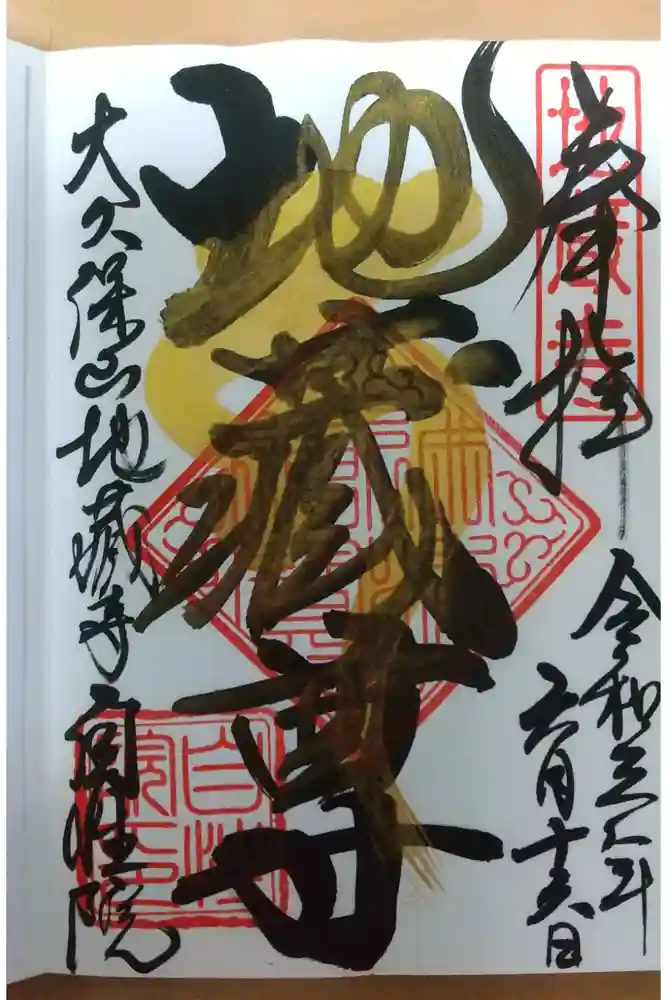 奉拝
地蔵寺
令和三年
六月十六日
地蔵尊
大久保山地蔵寺自性院